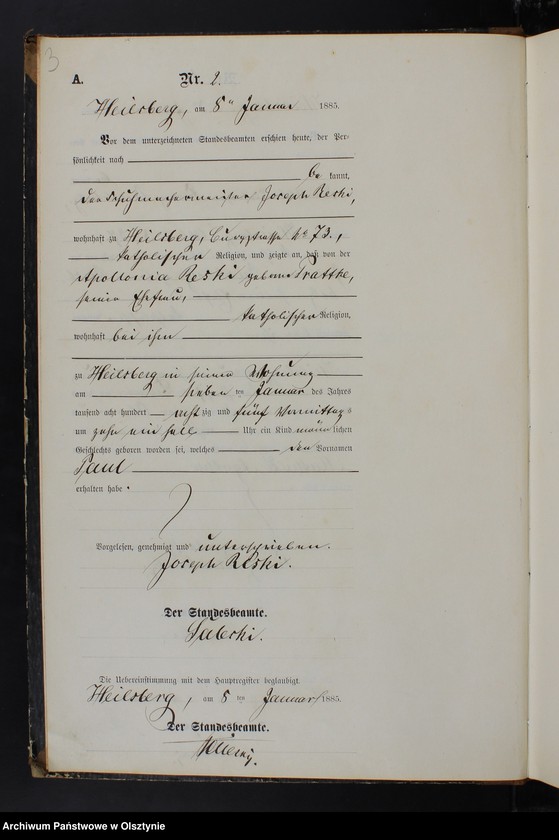 3
A. Nr. 2.
Heilsberg, am 8ten Januar 1885.
Vor dem unterzeichneten Standesbeamten erschien heute, der Per-
sönlichkeit nach
be kannt,
der Schuhmachermeister Joseph Reski,
wohnhaft zu Heilsberg, Burgstrasse No 73.,
katholischer Religion, und zeigte an, daß von der
Apollonia Reski geborne Prattke,
seiner Ehefrau,
katholischer Religion,
wohnhaft bei ihm
zu Heilsberg in seiner Wohnung
am sieben ten Januar des Jahres
tausend acht hundert acht zig und fünf Vormittags
um zehn ein halb Uhr ein Kind männ lichen
Geschlechts geboren worden sei, welches den Vornamen
Paul
erhalten habe.
Vorgelesen, genehmigt und unterschrieben.
Joseph Reski.
Der Standesbeamte.
Die Uebereinstimmung mit dem Hauptregister beglaubigt.
Heilsberg, am 8 ten Januar 1885.
Der Standesbeamte.
Archiwum Państwowe w Olsztynie